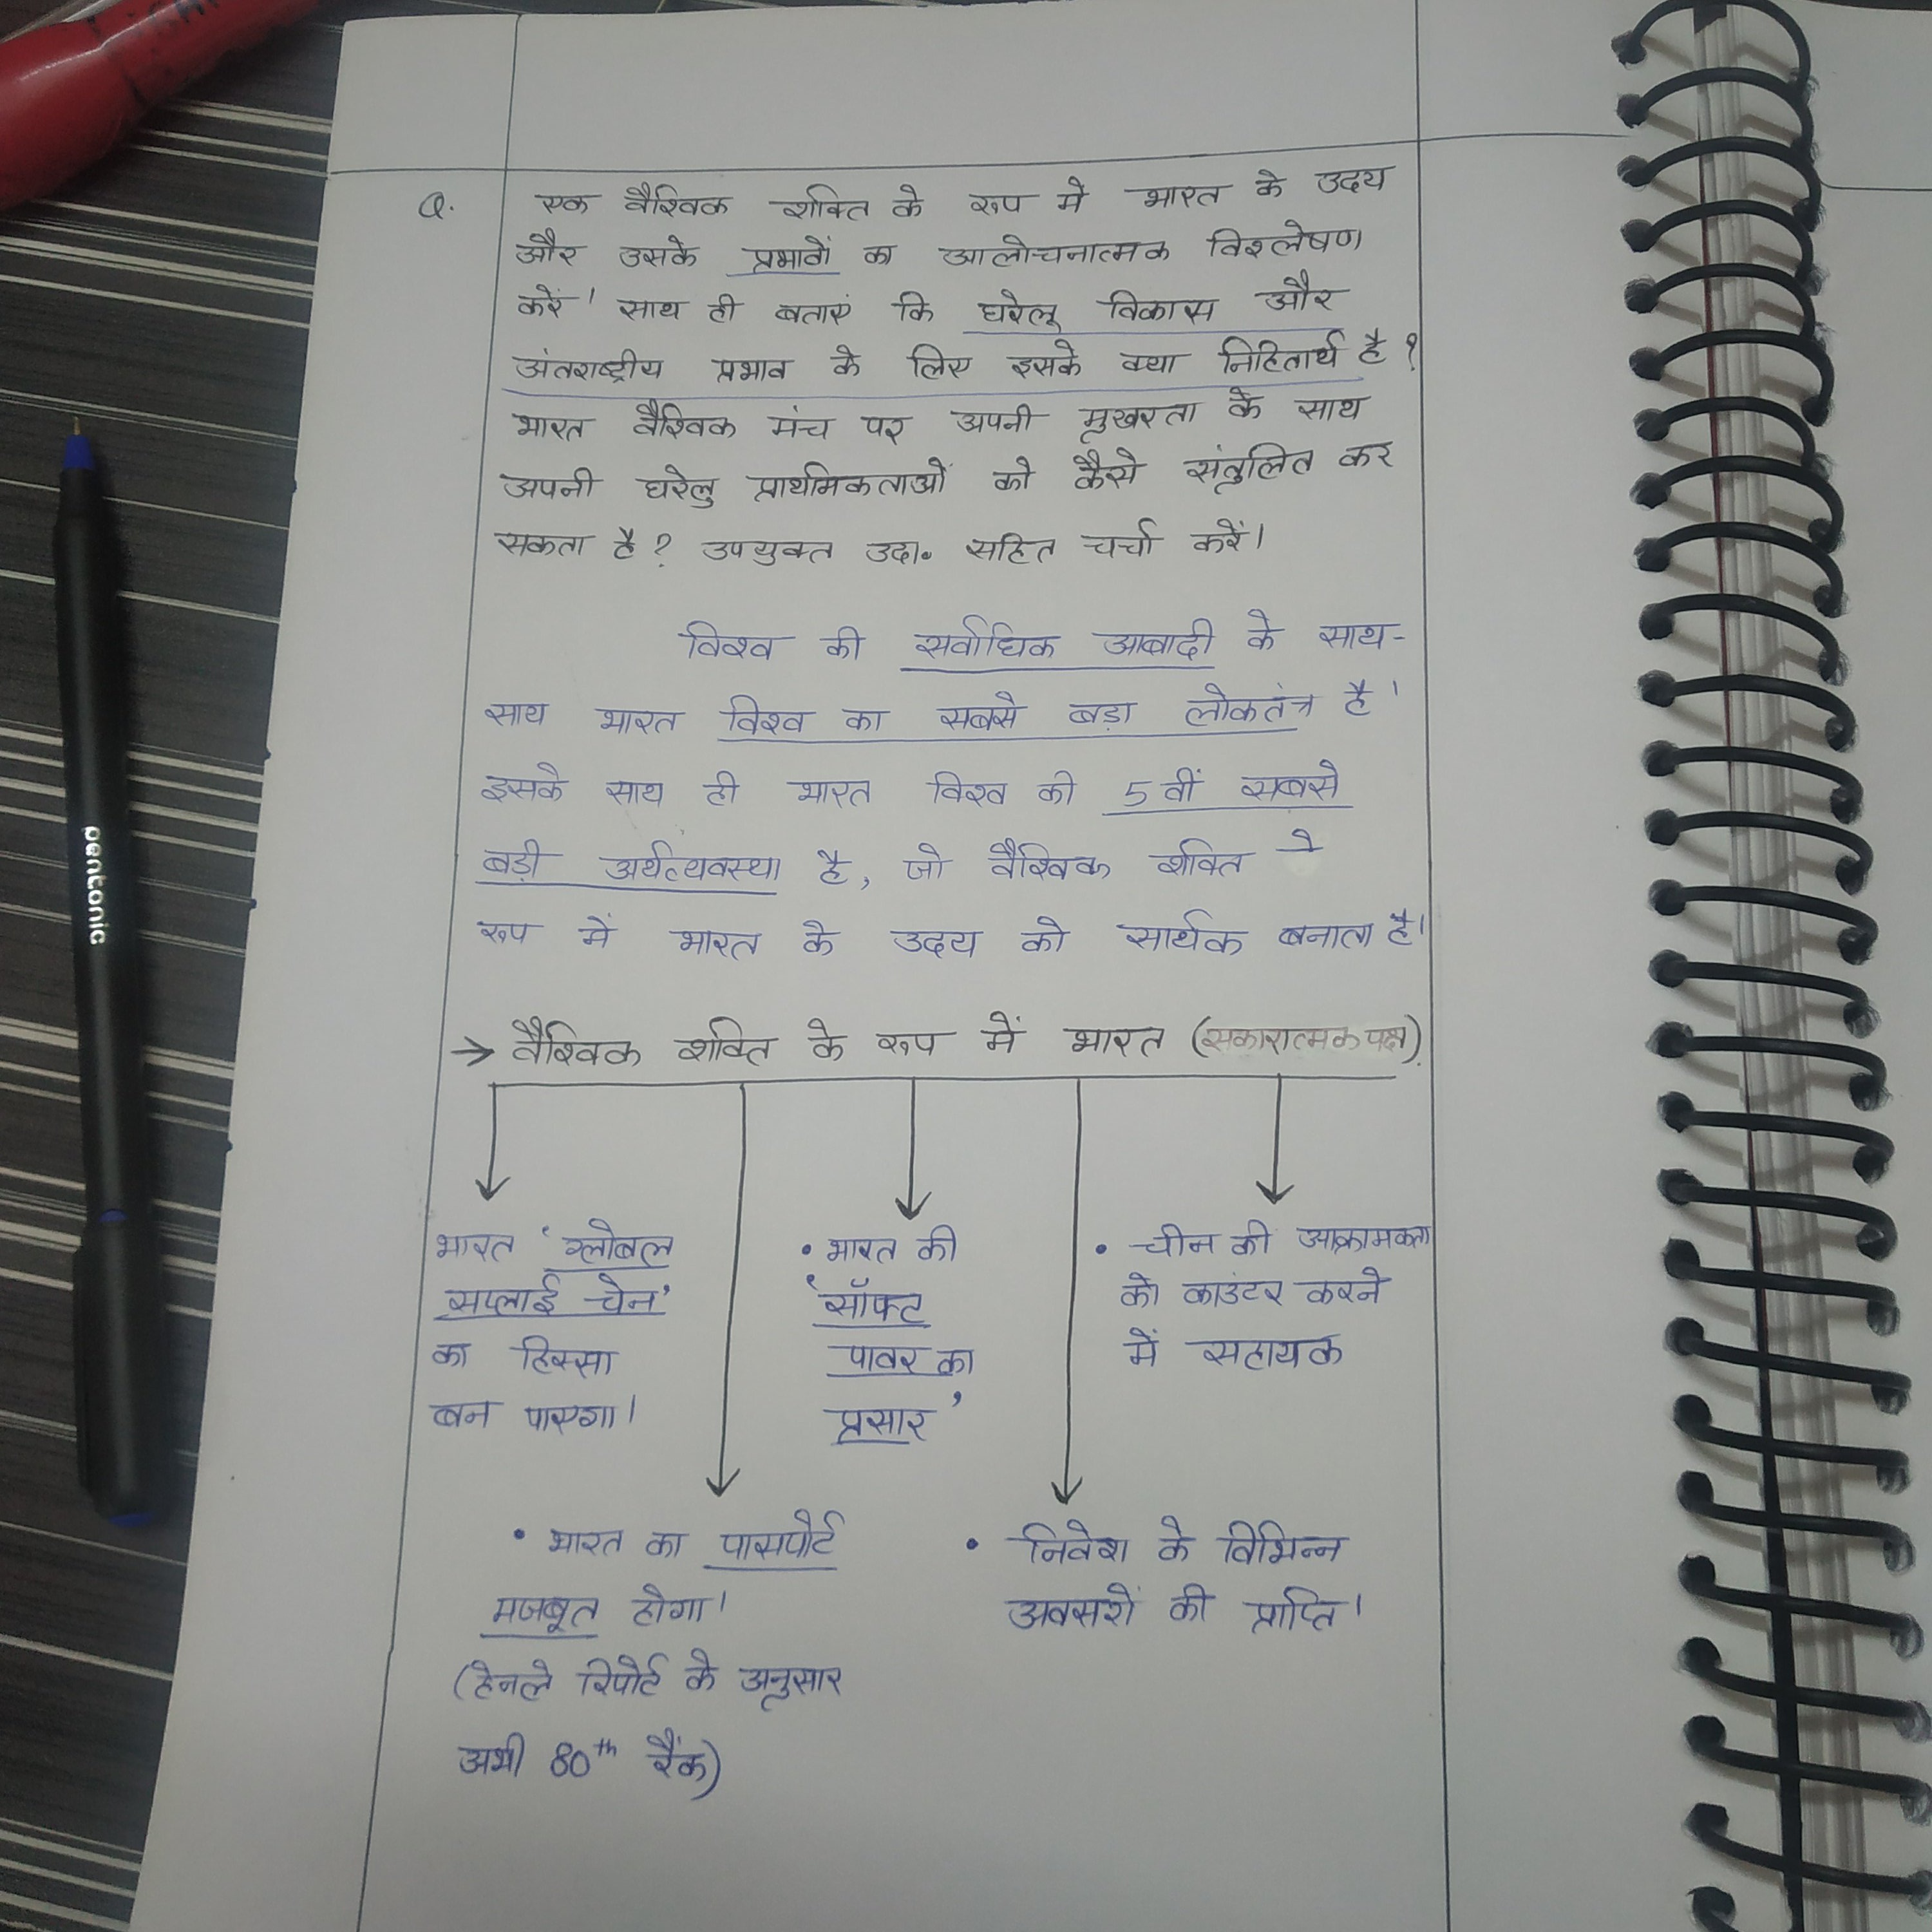 Q. एक वैश्विक शक्ति के रूप मे भारत के उदय
और उसके प्रभावों का आलोचनात्मक विश्लेषण
करें। साथ ही बताएं कि घरेलू विकास और
अंतराष्ट्रीय प्रभाव के लिए इसके क्या निहितार्थ है?
भारत वैश्विक मंच पर अपनी मुखरता के साथ
अपनी घरेलु प्राथमिकताओं को कैसे संतुलित कर
सकता है? उपयुक्त उदा० सहित चर्चा करें।
विश्व की सर्वाधिक आबादी के साथ-
साथ भारत विश्व का सबसे बड़ा लोकतंत्र है।
इसके साथ ही भारत विश्व की 5वीं सबसे
बड़ी अर्थव्यवस्था है, जो वैश्विक शक्ति
रूप में भारत के उदय को सार्थक बनाता है।
→ वैश्विक शक्ति के रूप में भारत (सकारात्मक पक्ष)
भारत 'ग्लोबल
सप्लाई चेन'
का हिस्सा
बन पाएगा।
• भारत की
'सॉफ्ट
पावर का
प्रसार'
• चीन की आक्रामकता
को काउंटर करने
में सहायक
• भारत का पासपोर्ट
मजबूत होगा।
(हेनले रिपोर्ट के अनुसार
अभी 80th रैंक)
• निवेश के विभिन्न
अवसरों की प्राप्ति।
pentonic